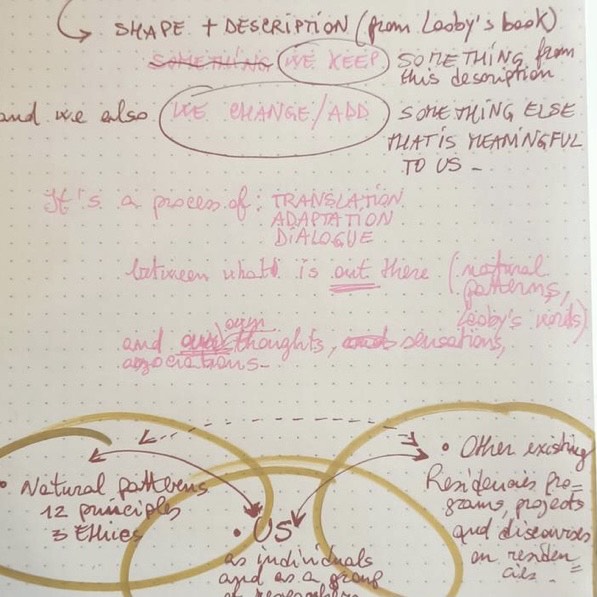 SHAPE + DESCRIPTION (from Looby's book)
SOMETHING WE KEEP SOMETHING from
this description
and we also WE CHANGE/ADD SOMETHING ELSE
THAT IS MEANINGFUL
TO US -
It's a process of: TRANSLATION
ADAPTATION
DIALOGUE
between what is out there (natural
patterns,
Looby's words)
own
and our thoughts, and sensations,
associations-
• Natural patterns
12 principles
3 Ethics
• US
as individuals
and as a group
• Other existing
Residencies pro=
grams, projects
and discourses
on residen=
cies.